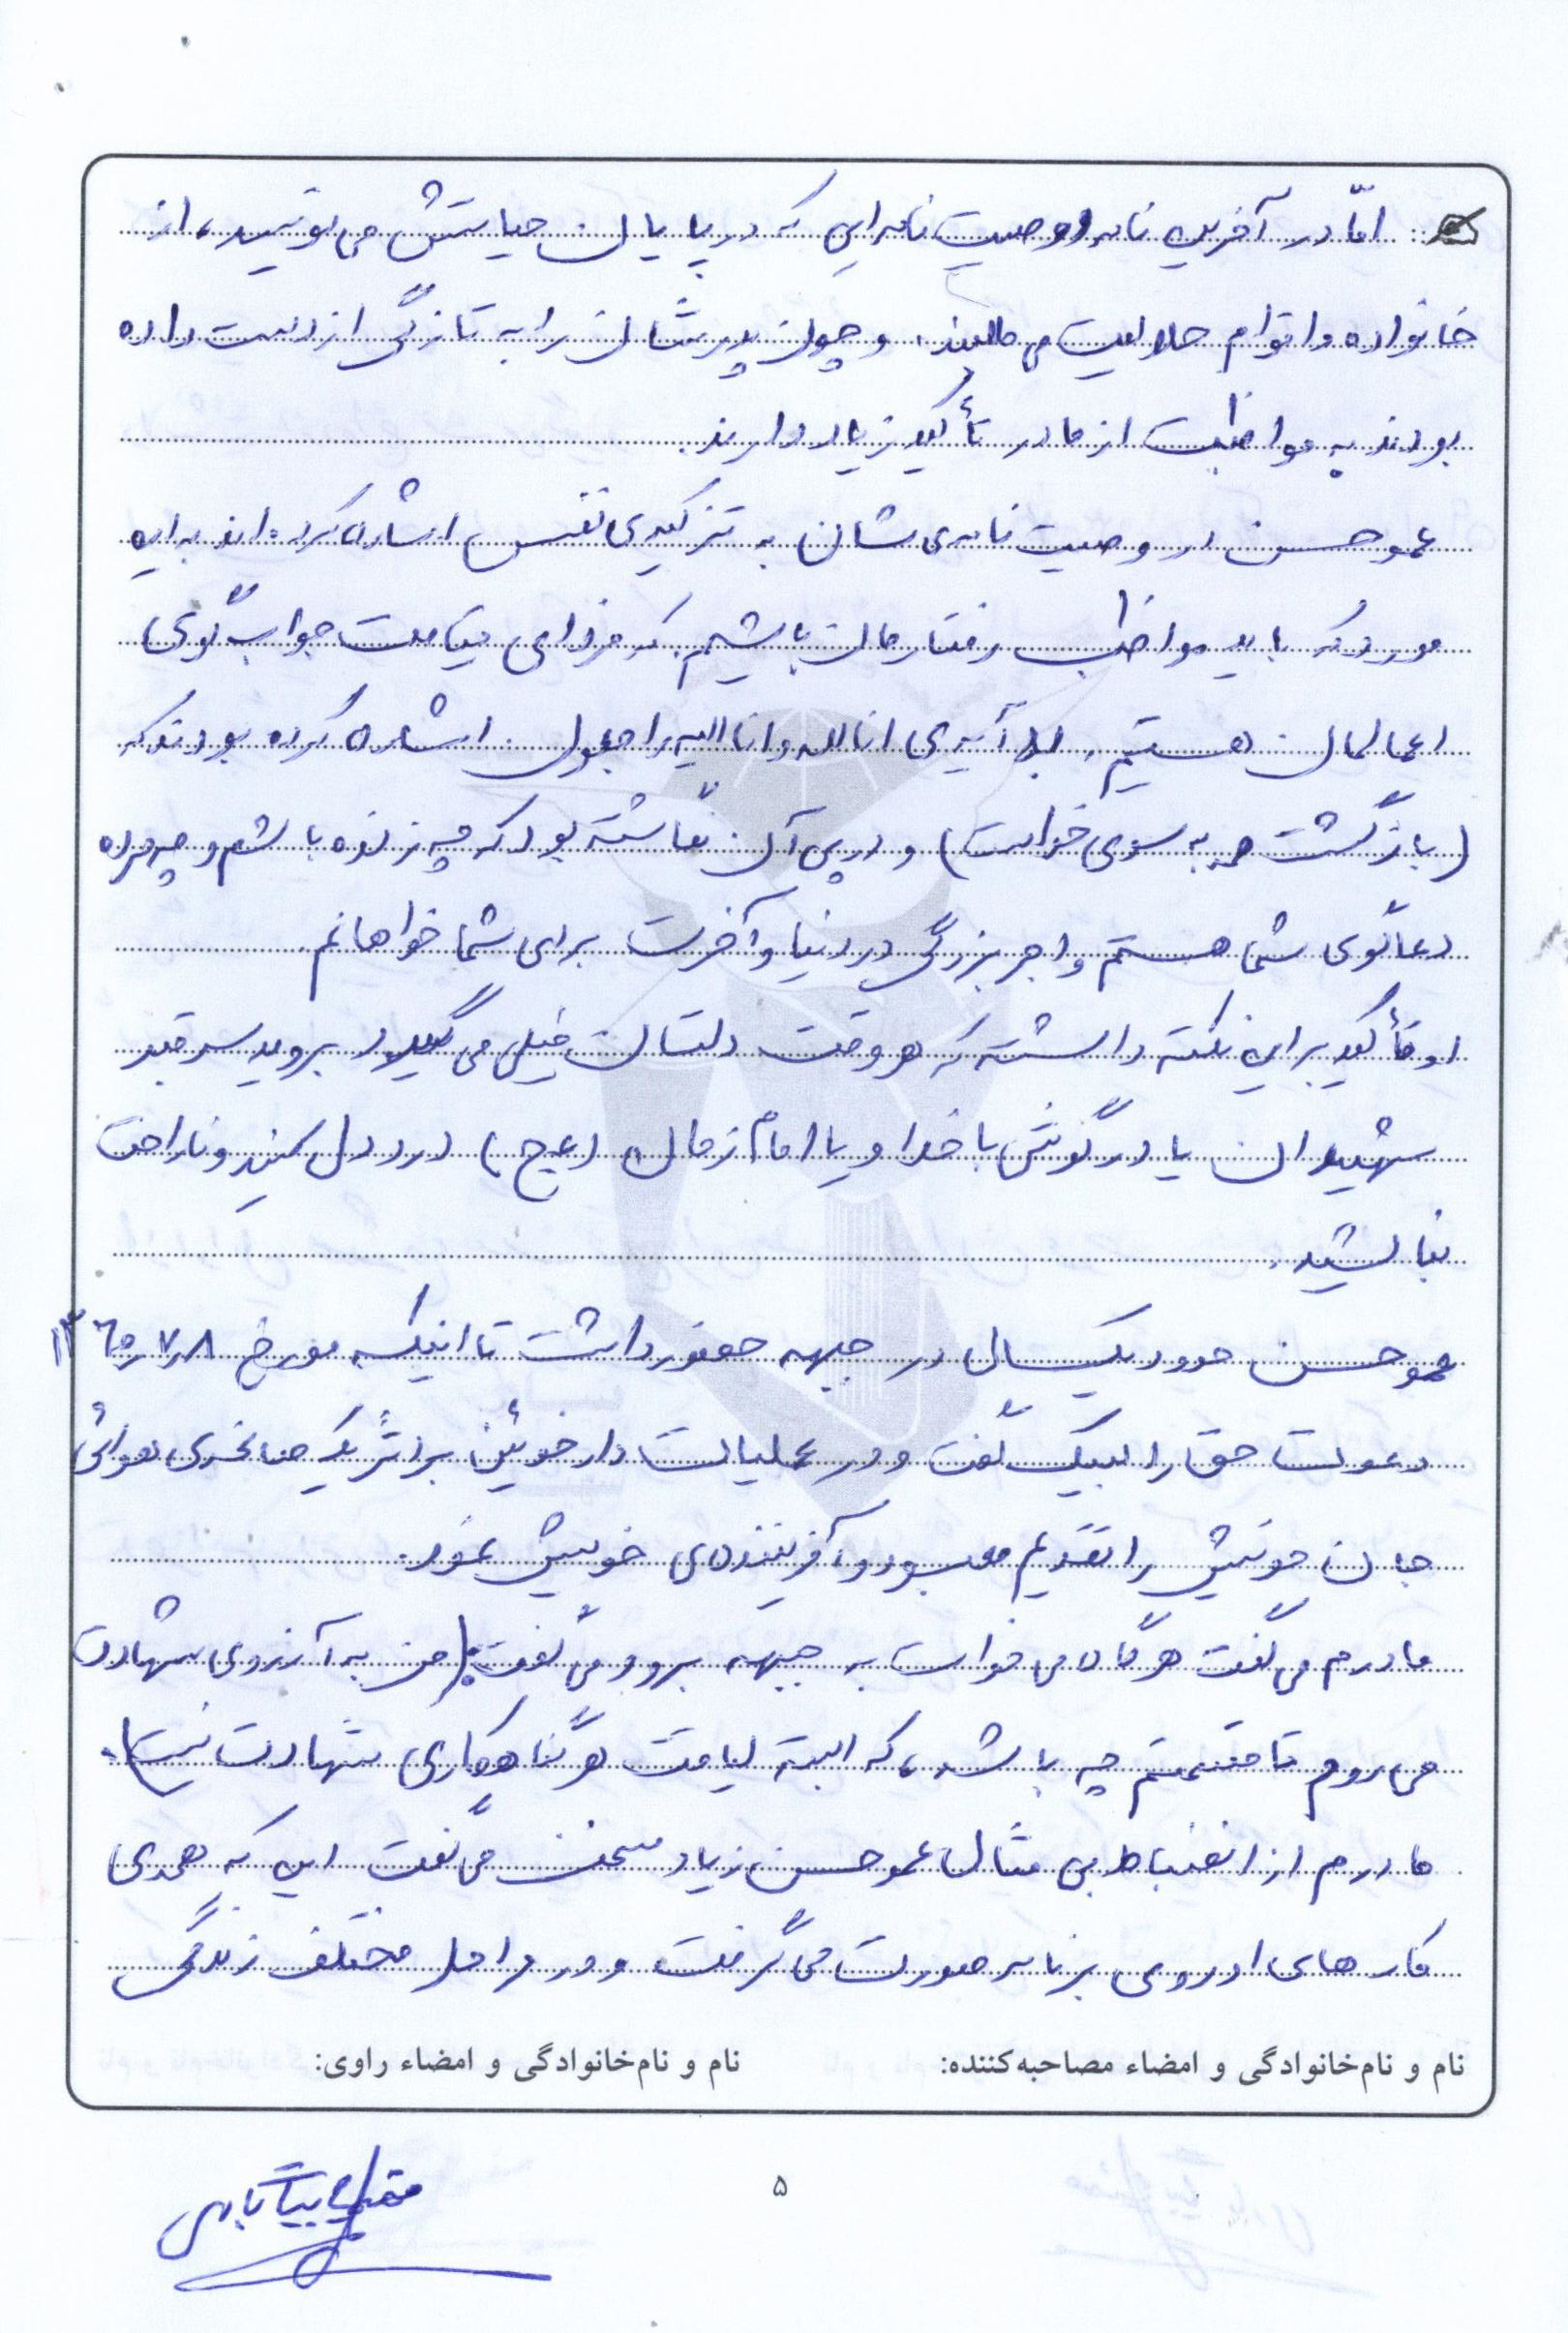 امّا در آخرین نامه و وصیت نامه ایی که در پایان حیاتش می نویسد، از
خانواده و اقوام حلالیت می طلبند. و چون پدرشان را به تازگی از دست داده
بودند به مواظبت از مادر تأکید زیاد دارند.
عمو حسن در وصیت نامه ی شان به تزکیه ی نفس اشاره کرده اند به این
مورد که باید مواظب رفتارمان باشیم. که فردای قیامت جواب گوی
اعمالمان هستیم. با آیه ی انا لله و انا الیه راجعون اشاره کرده بودند که
(بازگشت همه به سوی خداست) و در پی آن نگاشته بود که چه زنده باشم و چه مرده
دعاگوی شما هستم و اجر بزرگی در دنیا و آخرت برای شما خواهانم.
او تأکید بر این نکته داشته که هر وقت دلتان خیلی می گیرد بروید سر قبر
شهیدان یا در گوشی با خدا و یا امام زمان (عج) درد دل کنید و ناراحت
نباشید.
عمو حسن حدود یکسال در جبهه حضور داشت تا اینکه مورخ ۱۳۶۵/۷/۸
دعوت حق را لبیک گفت و در عملیات دارخوئین بر اثر یک سانحه ی هوائی
جان خویش را تقدیم معبود و آفریننده ی خویش نمود.
مادرم می گفت هر گاه می خواست به جبهه برود می گفت: (من به آرزوی شهادت
می روم تا قسمتم چه باشد، که البته لیاقت هر گناهکاری شهادت نیست).
مادرم از انضباط بی مثال عمو حسن زیاد سخن می گفت این که همه ی
کارهای او روی برنامه صورت می گرفت و در مراحل مختلف زندگی
نام و نام‌خانوادگی و امضاء مصاحبه‌کننده: نام و نام‌خانوادگی و امضاء راوی:
۵